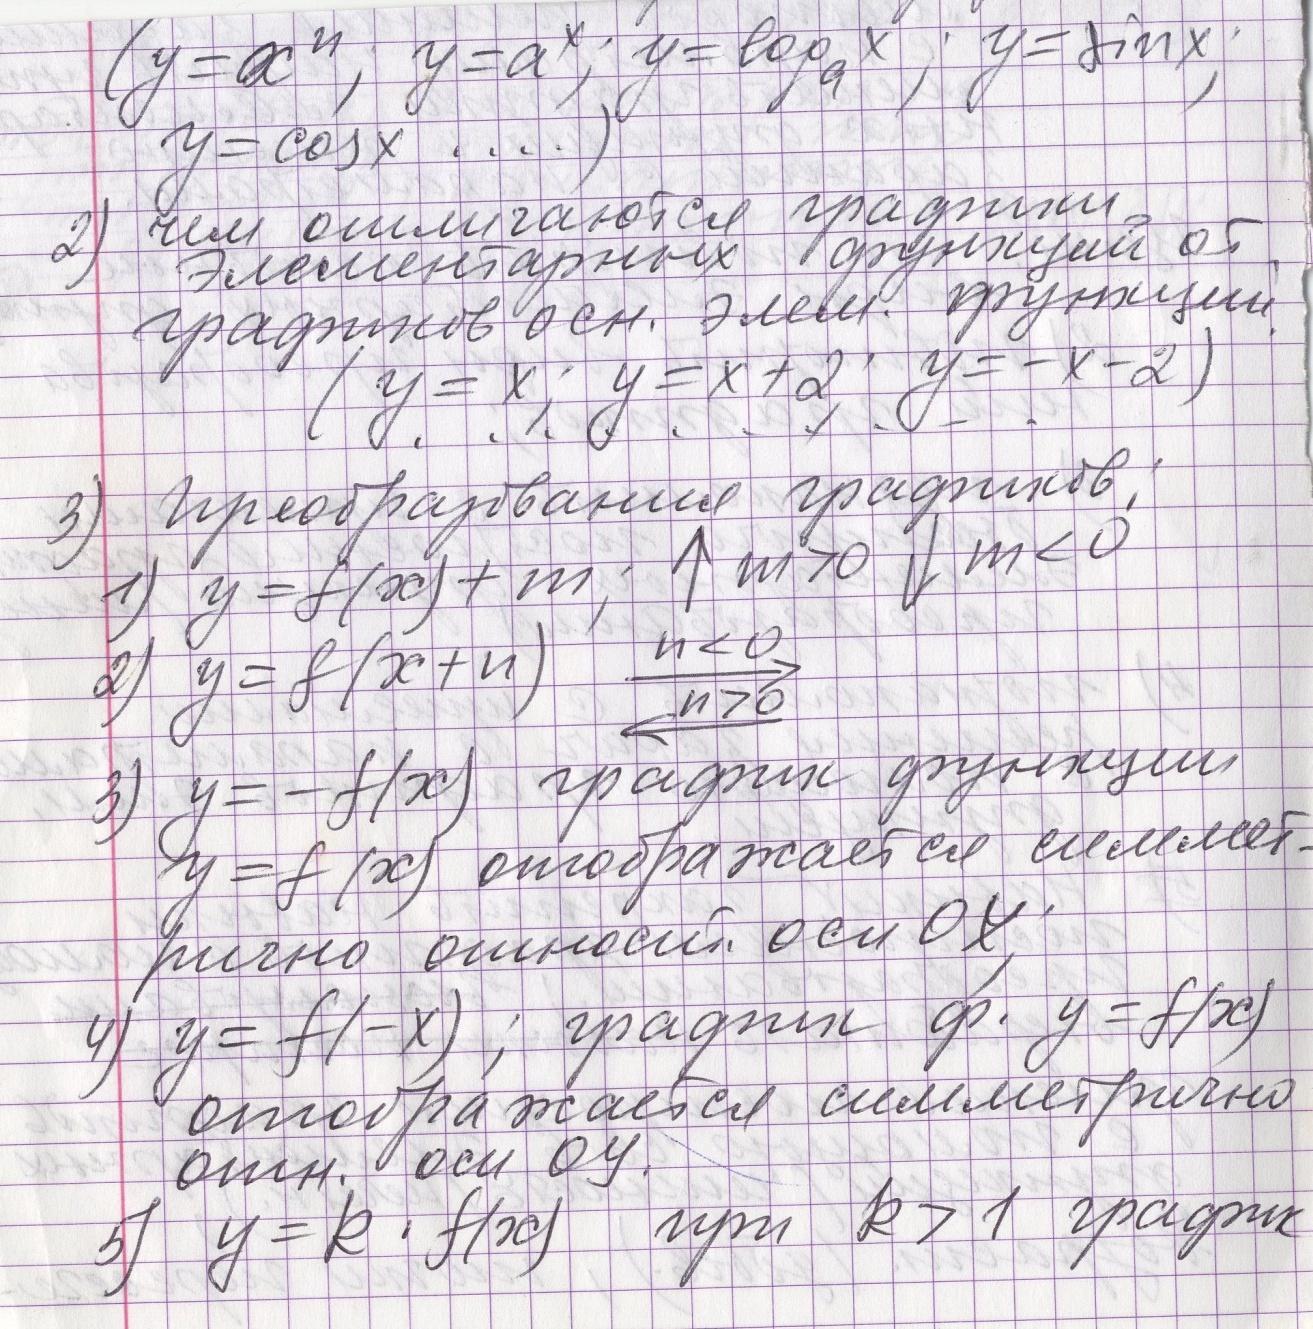 (y=xⁿ, y=aˣ; y=logₐx; y=sinx;
y=cosx ....)
2) чем отличаются графики
элементарных функций от
графиков осн. элем. функций.
(y=x; y=x+2; y=-x-2)
3) Преобразования графиков:
1) y=f(x)+m; ↑m>0 ↓m<0
2) y=f(x+n) n<0 →
n>0 ←
3) y=-f(x) график функции
y=f(x) отображается симмет-
рично относит. оси OX;
4) y=f(-x); график ф. y=f(x)
отображается симметрично
отн. оси OY.
5) y=k·f(x) при k>1 график